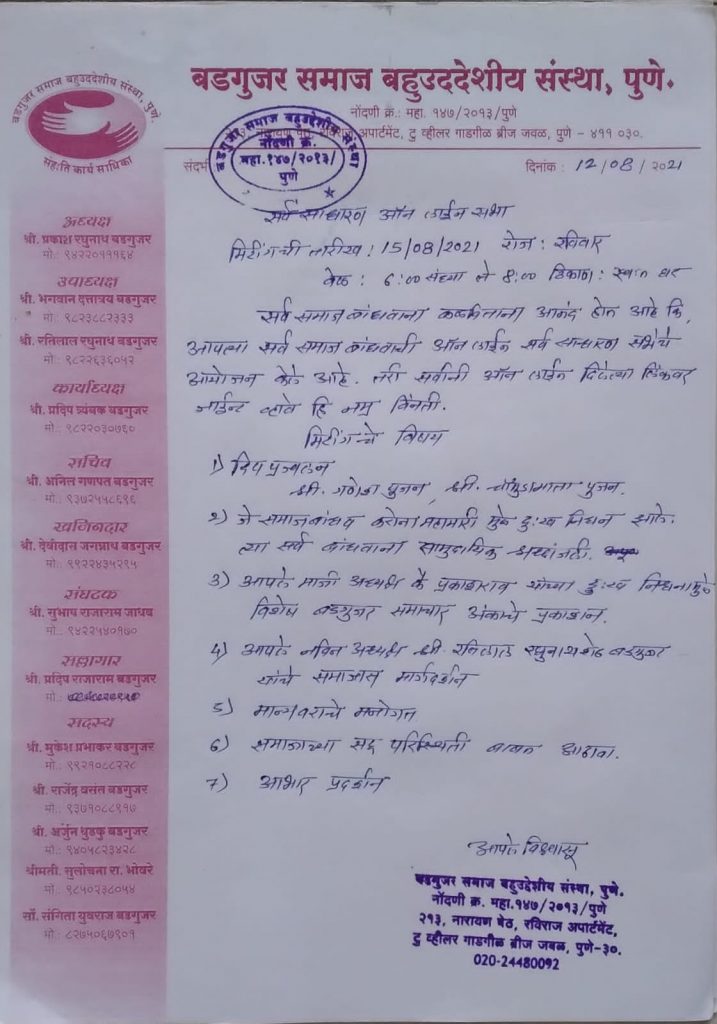 बडगुजर समाज बहुउददेशीय संस्था, पुणे.
नोंदणी क्र.: महा. १४७/२०१३/पुणे
नारायण पेठ, रविराज अपार्टमेंट, टु व्हीलर गाडगीळ ब्रीज जवळ, पुणे - ४११ ०३०.
बडगुजर समाज बहुउददेशीय संस्था, पुणे.
संहति कार्य साधिका
बडगुजर समाज बहुउद्देशीय संस्था
नोंदणी क्र.
महा.१४७/२०१३/
पुणे
संदर्भ
दिनांक : 12/08/२०21
सर्व साधारण ऑन लाईन सभा
मिटींगची तारीख : 15/08/2021 रोज : रविवार
वेळ : 6:00 संध्या ते 8:00 ठिकाण : स्वतः घर
सर्व समाज बांधवाना कळवितांना आनंद होत आहे कि,
आपल्या सर्व समाज बांधवाची ऑन लाईन सर्व साधारण सभेचे
आयोजन केले आहे. तरी सर्वांनी ऑन लाईन दिलेल्या लिंकवर
जाईन्ट व्हावे हि नम्र विनंती.
मिटींगचे विषय
1) दिप प्रज्वलन
श्री. गणेश पुजन, श्री. चांमुडामाता पुजन.
२) जे समाजबांधव करोना महामारी मुळे दुःख निधन झाले.
त्या सर्व बांधवाना सामुदायिक श्रध्दांजली.
3) आपले माजी अध्यक्ष कै प्रकाशराव यांच्या दुःख निधनामुळे
विशेष बडगुजर समाचार अंकाचे प्रकाशन.
4) आपले नविन अध्यक्ष श्री. रतिलाल रघुनाथशेठ बडगुजर
यांचे समाजास मार्गदर्शन
5) मान्यवराचे मनोगत
6) समाजाच्या सद्द परिस्थिती बाबत आढावा.
7) आभार प्रदर्शन
आपले विश्वासू
बडगुजर समाज बहुउद्देशीय संस्था, पुणे.
नोंदणी क्र. महा.१४७/२०१३/पुणे
२१३, नारायण पेठ, रविराज अपार्टमेंट,
टु व्हीलर गाडगीळ ब्रीज जवळ, पुणे-३०.
020-24480092
अध्यक्ष
श्री. प्रकाश रघुनाथ बडगुजर
मो.: ९४२२०१११६४
उपाध्यक्ष
श्री. भगवान दत्तात्रय बडगुजर
मो.: ९८२३८८२३३३
श्री. रतिलाल रघुनाथ बडगुजर
मो.: ९८२२६३६०५२
कार्याध्यक्ष
श्री. प्रदिप त्र्यंबक बडगुजर
मो.: ९८२२०३०७६०
सचिव
श्री. अनिल गणपत बडगुजर
मो.: ९३७२५५८६९६
खजिनदार
श्री. देवीदान जगन्नाथ बडगुजर
मो.: ९९२२४३५२९५
संघटक
श्री. सुभाष राजाराम जाधव
मो.: ९४२२५४०१७०
सल्लागार
श्री. प्रदिप राजाराम बडगुजर
मो.:
सदस्य
श्री. मुकेश प्रभाकर बडगुजर
मो.: ९९२१०८८२२८
श्री. राजेंद्र वसंत बडगुजर
मो.: ९३७१०८८९१७
श्री. अर्जुन धुडकु बडगुजर
मो.: ९४०५८२३४२८
श्रीमती. सुलोचना रा. भोवरे
मो.: ९८५०२३८०५४
सौ. संगिता युवराज बडगुजर
मो.: ८२७५०६७९०१